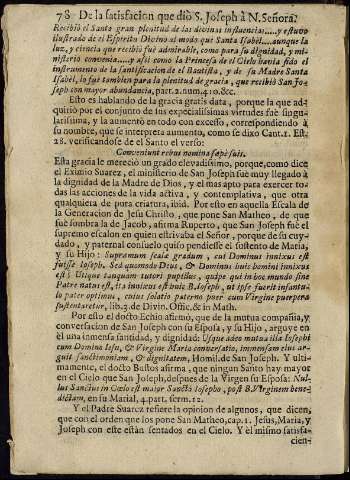 78 De la satisfacion que diò S. Joseph à N. Señora.
Recibiò el Santo gran plenitud de las divinas influencias.....y estuvo
ilustrado de el Espiritu Divino al modo que Santa Isabèl.....aunque la
luz, y ciencia que recibiò fuè admirable, como para su dignidad, y mi-
nisterio convenia.....y assi como la Princesa de el Cielo havia sido el
instrumento de la santificacion de el Bautista, y de su Madre Santa
Isabèl, lo fuè tambien para la plenitud de gracia, que recibiò San Jo-
seph con mayor abundancia, part.2.num.410.&c.
Esto es hablando de la gracia gratis data, porque la que ad-
quiriò por el conjunto de sus especialissimas virtudes fuè singu-
larissima, y la aumentò en todo con excesso, correspondiendo à
su nombre, que se interpreta aumento, como se dixo Cant.1. Est.
28. verificandose de el Santo el verso:
Conveniunt rebus nomina sæpè suis.
Esta gracia le mereciò un grado elevadissimo, porque, como dice
el Eximio Suarez, el ministerio de San Joseph fuè muy llegado à
la dignidad de la Madre de Dios, y el mas apto para exercer to-
das las acciones de la vida activa, y contemplativa, que otra
qualquiera de pura criatura, ibid. Por esto en aquella Escala de
la Generacion de Jesu Christo, que pone San Matheo, de que
fuè sombra la de Jacob, afirma Ruperto, que San Joseph fuè el
supremo escalon en quien estrivaba el Señor, porque de su cuy-
dado, y paternal consuelo quiso pendiesse el sustento de Maria,
y su Hijo: Supremum scalæ gradum, cui Dominus innixus est
fuisse Ioseph. Sed quomodo Deus, & Dominus huic homini innixus
est? Utique tanquam tutori pupillus, quipe qui in hoc mundo sine
Pater natus est, ita innixus est huic B. Ioseph, ut ipse fuerit infantu-
lo pater optimus, cuius solatio paterno puer cum Virgine puerpera
sustentaretur, lib.3. de Divin. Offic. & in Math.
Por esto el docto Echio afirmò, que de la mutua compañia, y
conversacion de San Joseph con su Esposa, y su Hijo, arguye en
èl una inmensa santidad, y dignidad: Usque adeo mutua illa Iosephi
cum Domino Iesu, & Virgine Maria conversatio, immensam eius ar-
guit sanctimoniam, & dignitatem, Homil. de San Joseph. Y ulti-
mamente, el docto Bustos afirma, que ningun Santo hay mayor
en el Cielo que San Joseph, despues de la Virgen su Esposa: Nul-
lus Sanctus in Cœlo est maior Sancto Iosepho, post B. Virginem bene-
dictam, en su Marial, 4. part. serm. 12.
Y el Padre Suarez refiere la opinion de algunos, que dicen,
que con el orden que los pone San Matheo, cap. 1. Jesus, Maria, y
Joseph con este estàn sentados en el Cielo. Y el mismo satisfa-
cien-